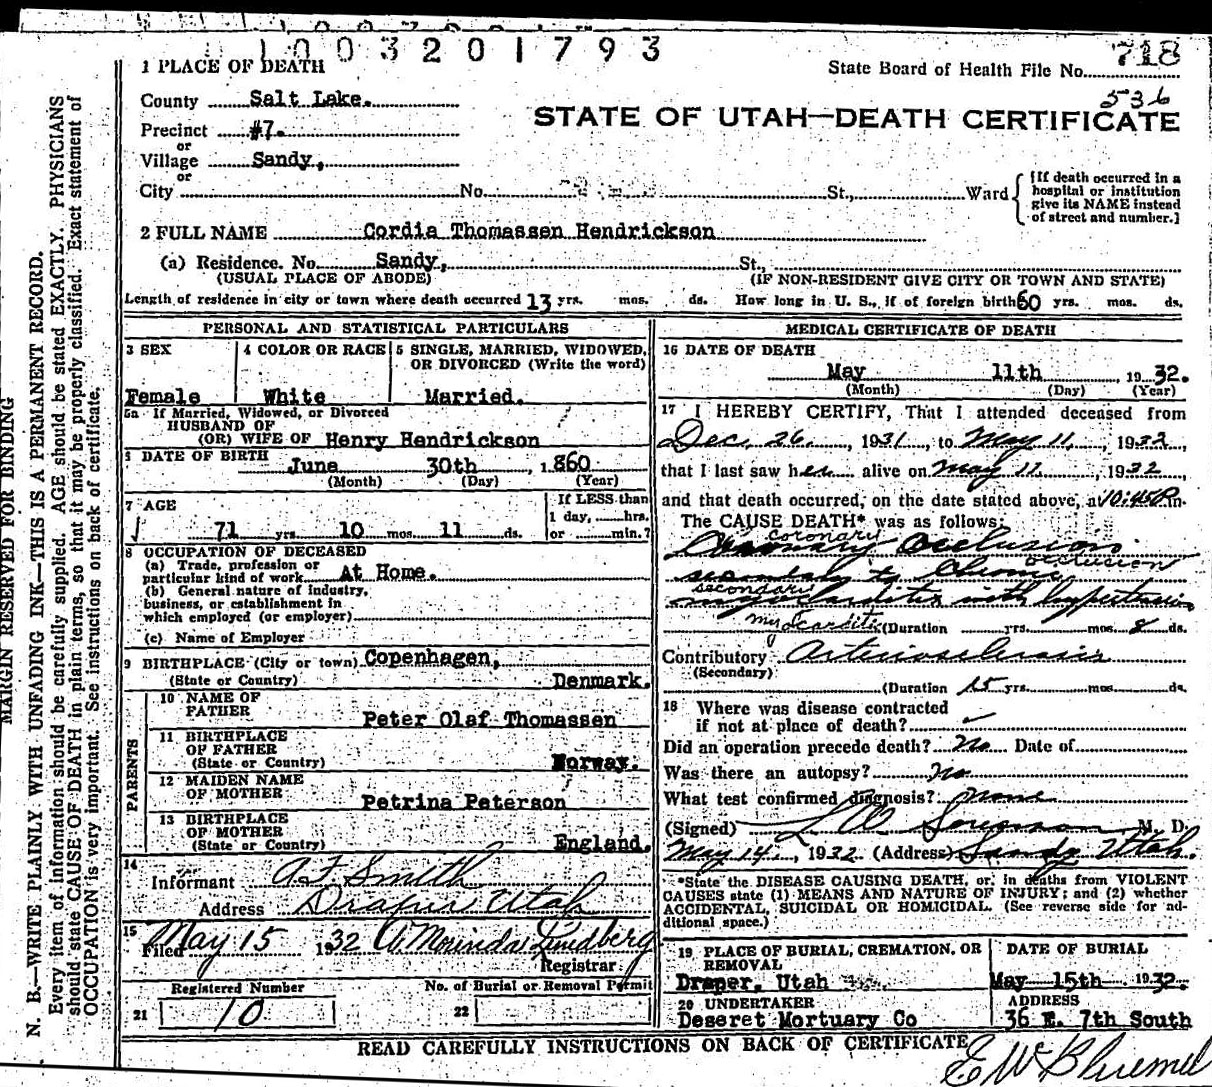 1003201793
718
1 PLACE OF DEATH
State Board of Health File No.
536
County Salt Lake.
STATE OF UTAH—DEATH CERTIFICATE
Precinct #7.
or
Village Sandy,
or
City No. St., Ward
[If death occurred in a hospital or institution give its NAME instead of street and number.]
2 FULL NAME Cordia Thomassen Hendrickson
(a) Residence. No. Sandy, St.,
(USUAL PLACE OF ABODE) (IF NON-RESIDENT GIVE CITY OR TOWN AND STATE)
Length of residence in city or town where death occurred 13 yrs. mos. ds. How long in U. S., if of foreign birth 60 yrs. mos. ds.
PERSONAL AND STATISTICAL PARTICULARS
3 SEX
Female
4 COLOR OR RACE
White
5 SINGLE, MARRIED, WIDOWED,
OR DIVORCED (Write the word)
Married.
5a If Married, Widowed, or Divorced
HUSBAND OF
(OR) WIFE OF Henry Hendrickson
6 DATE OF BIRTH
June 30th, 1860
(Month) (Day) (Year)
7 AGE
71 yrs. 10 mos. 11 ds.
If LESS than
1 day, hrs.
or min.?
8 OCCUPATION OF DECEASED
(a) Trade, profession or
particular kind of work At Home.
(b) General nature of industry,
business, or establishment in
which employed (or employer)
(c) Name of Employer
9 BIRTHPLACE (City or town) Copenhagen,
(State or Country) Denmark.
PARENTS
10 NAME OF
FATHER Peter Olaf Thomassen
11 BIRTHPLACE
OF FATHER
(State or Country) Norway.
12 MAIDEN NAME
OF MOTHER Petrina Peterson
13 BIRTHPLACE
OF MOTHER
(State or Country) England.
14
Informant A F Smith
Address Draper Utah
15
Filed May 15 1932 A. Morinda Lundberg
Registrar
Registered Number
21 10
No. of Burial or Removal Permit
22
MEDICAL CERTIFICATE OF DEATH
16 DATE OF DEATH
May 11th, 1932.
(Month) (Day) (Year)
17 I HEREBY CERTIFY, That I attended deceased from
Dec. 26, 1931, to May 11, 1932,
that I last saw her alive on May 11, 1932
and that death occurred, on the date stated above, at 10:45 P m.
The CAUSE DEATH* was as follows:
coronary
Coronary Occlusion
occlusion
secondary to Chronic
secondary
myocarditis with hypertension
myocarditis
(Duration yrs. mos. 8 ds.
Contributory Arteriosclerosis
(Secondary)
(Duration 15 yrs. mos. ds.
18 Where was disease contracted
if not at place of death?
Did an operation precede death? No Date of
Was there an autopsy? No
What test confirmed diagnosis? none
(Signed) Sorenson M. D.
May 14, 1932 (Address) Sandy Utah.
*State the DISEASE CAUSING DEATH, or, in deaths from VIOLENT
CAUSES state (1) MEANS AND NATURE OF INJURY; and (2) whether
ACCIDENTAL, SUICIDAL OR HOMICIDAL. (See reverse side for ad-
ditional space.)
19 PLACE OF BURIAL, CREMATION, OR
REMOVAL
Draper, Utah
DATE OF BURIAL
May 15th 1932.
20 UNDERTAKER
Deseret Mortuary Co
ADDRESS
36 E. 7th South
READ CAREFULLY INSTRUCTIONS ON BACK OF CERTIFICATE
E W Bluemel
MARGIN RESERVED FOR BINDING
N. B.—WRITE PLAINLY WITH UNFADING INK—THIS IS A PERMANENT RECORD.
Every item of information should be carefully supplied. AGE should be stated EXACTLY. PHYSICIANS
should state CAUSE OF DEATH in plain terms, so that it may be properly classified. Exact statement of
OCCUPATION is very important. See instructions on back of certificate.